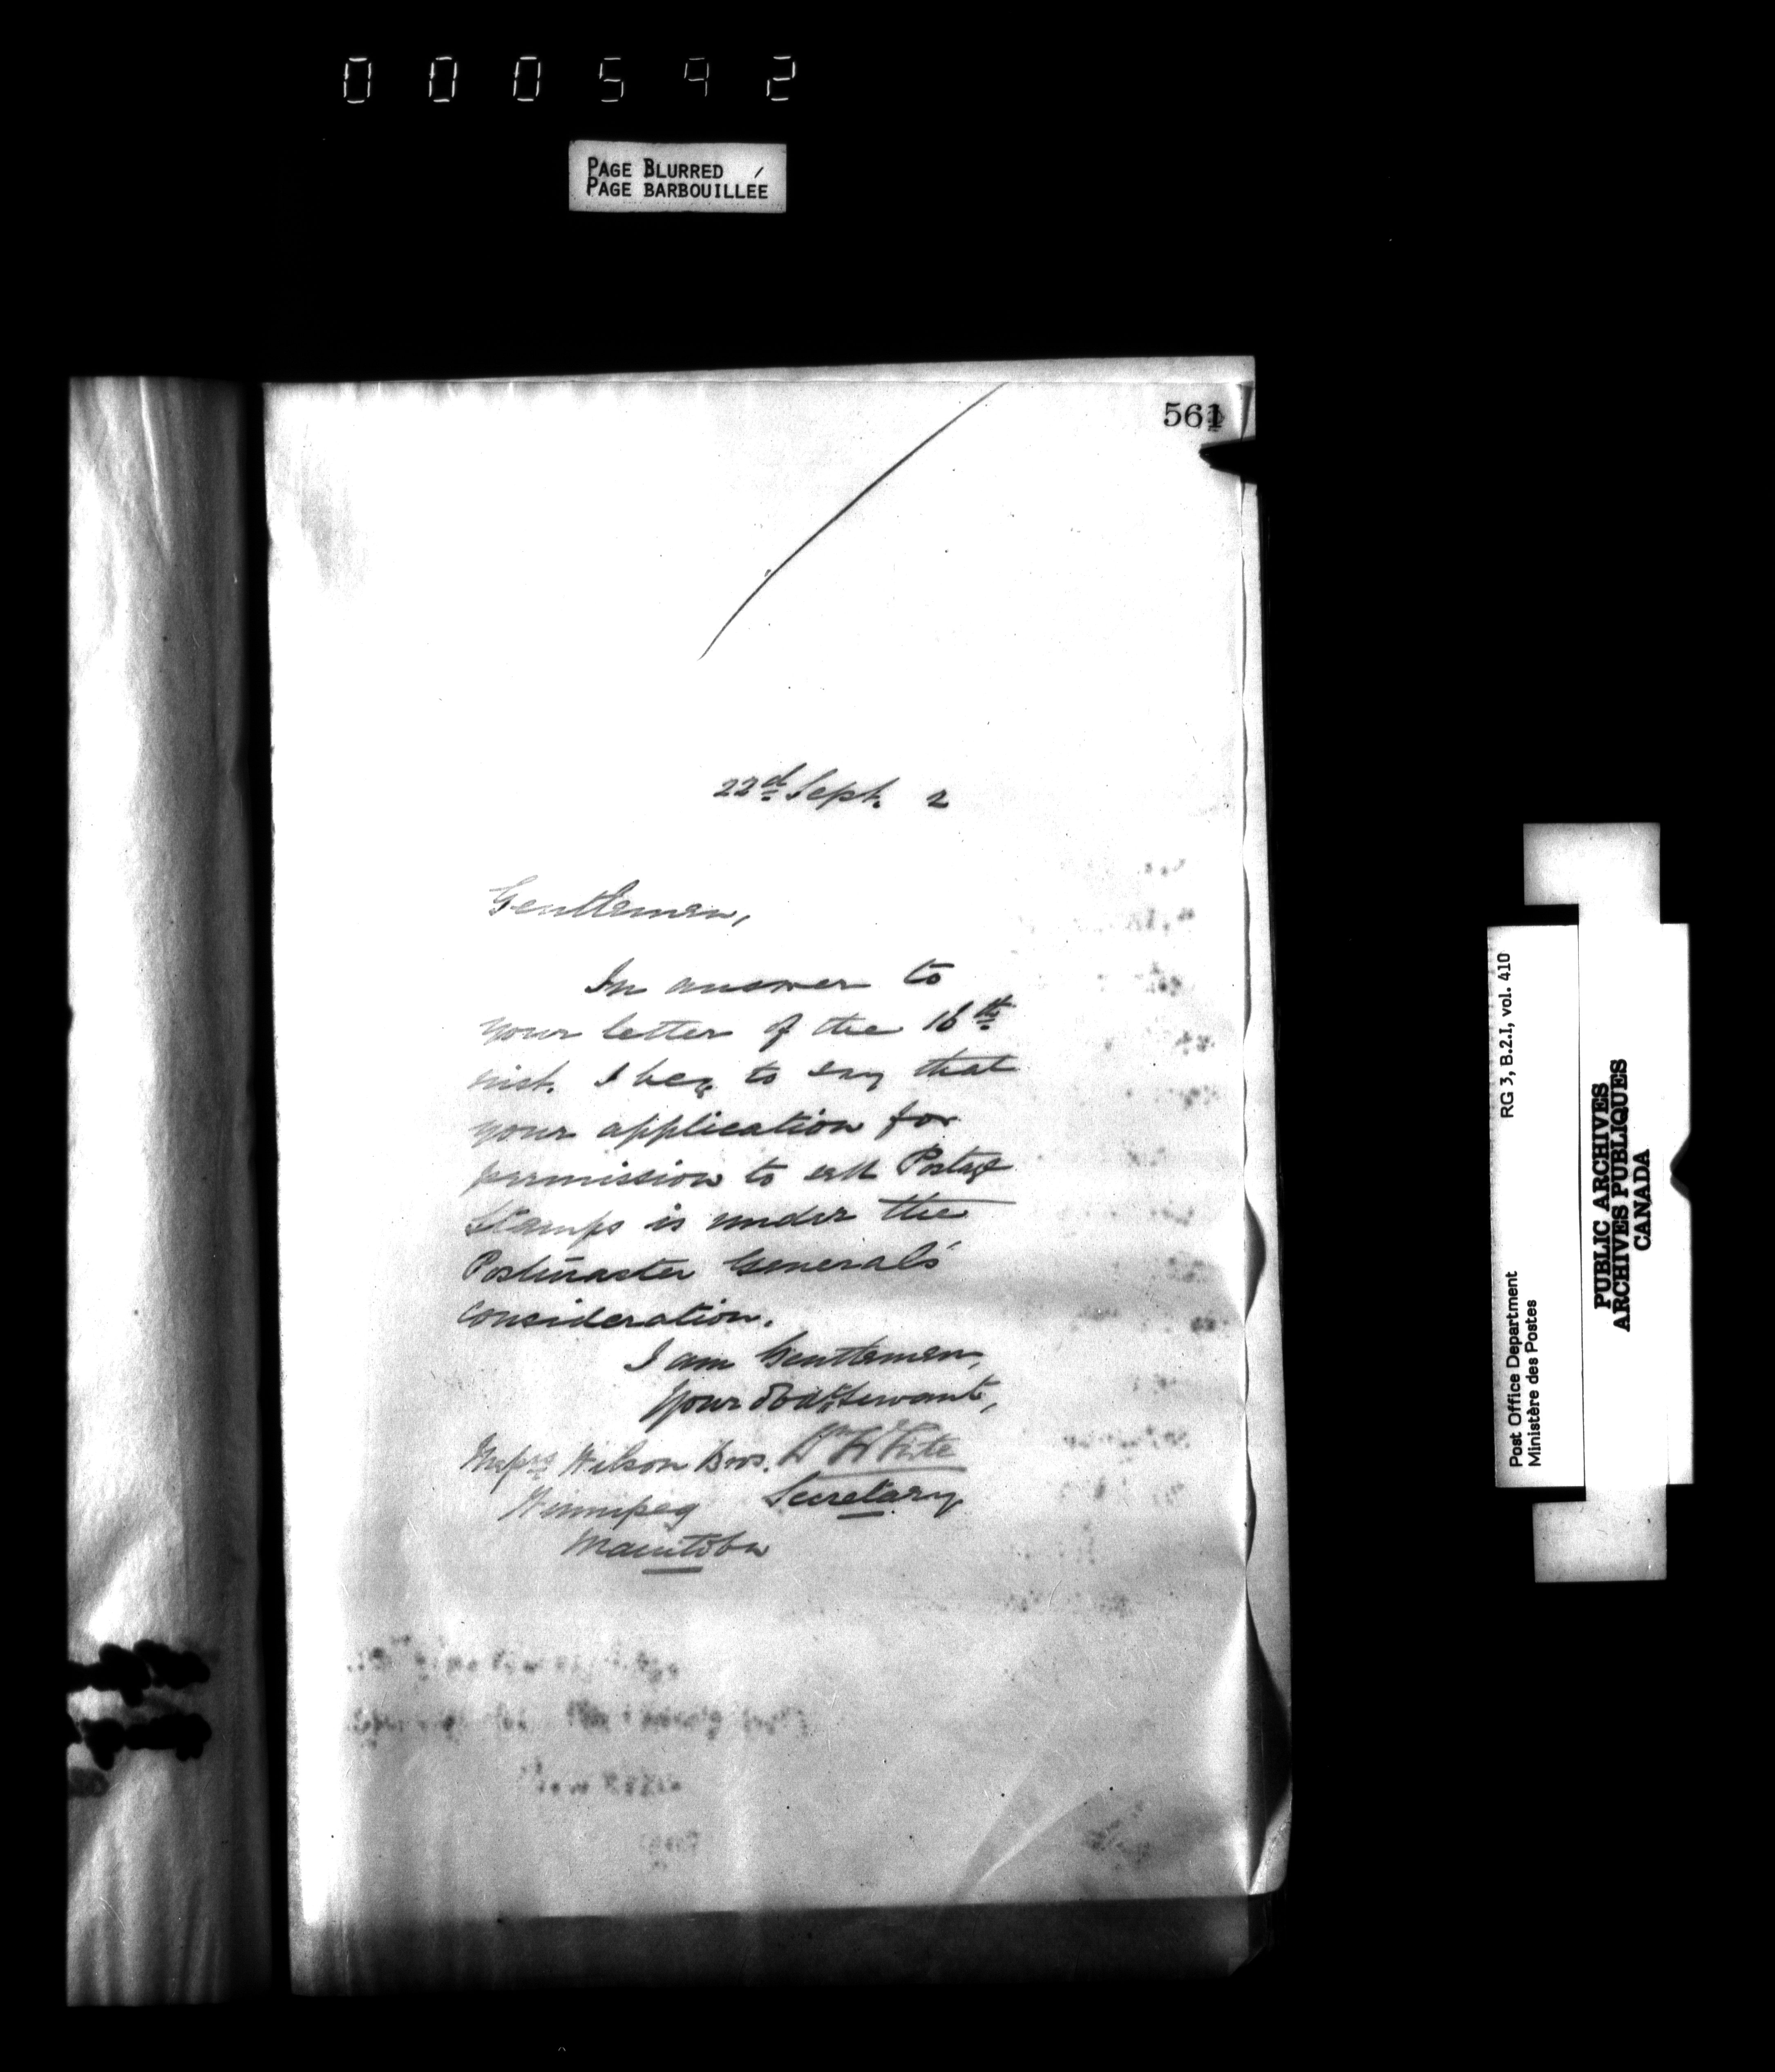 000592
PAGE BLURRED
PAGE BARBOUILLÉE
561
22d Sept. 2
Gentlemen,
In answer to
your letter of the 16th
inst. I beg to say that
your application for
permission to sell Postage
Stamps is under the
Postmaster General's
consideration.
I am Gentlemen,
Your Obdt. Servant,
Messrs Wilson Bros. Wm White
Winnipeg Secretary
Manitoba
Post Office Department RG 3, B.2.I, vol. 410
Ministère des Postes
PUBLIC ARCHIVES
ARCHIVES PUBLIQUES
CANADA